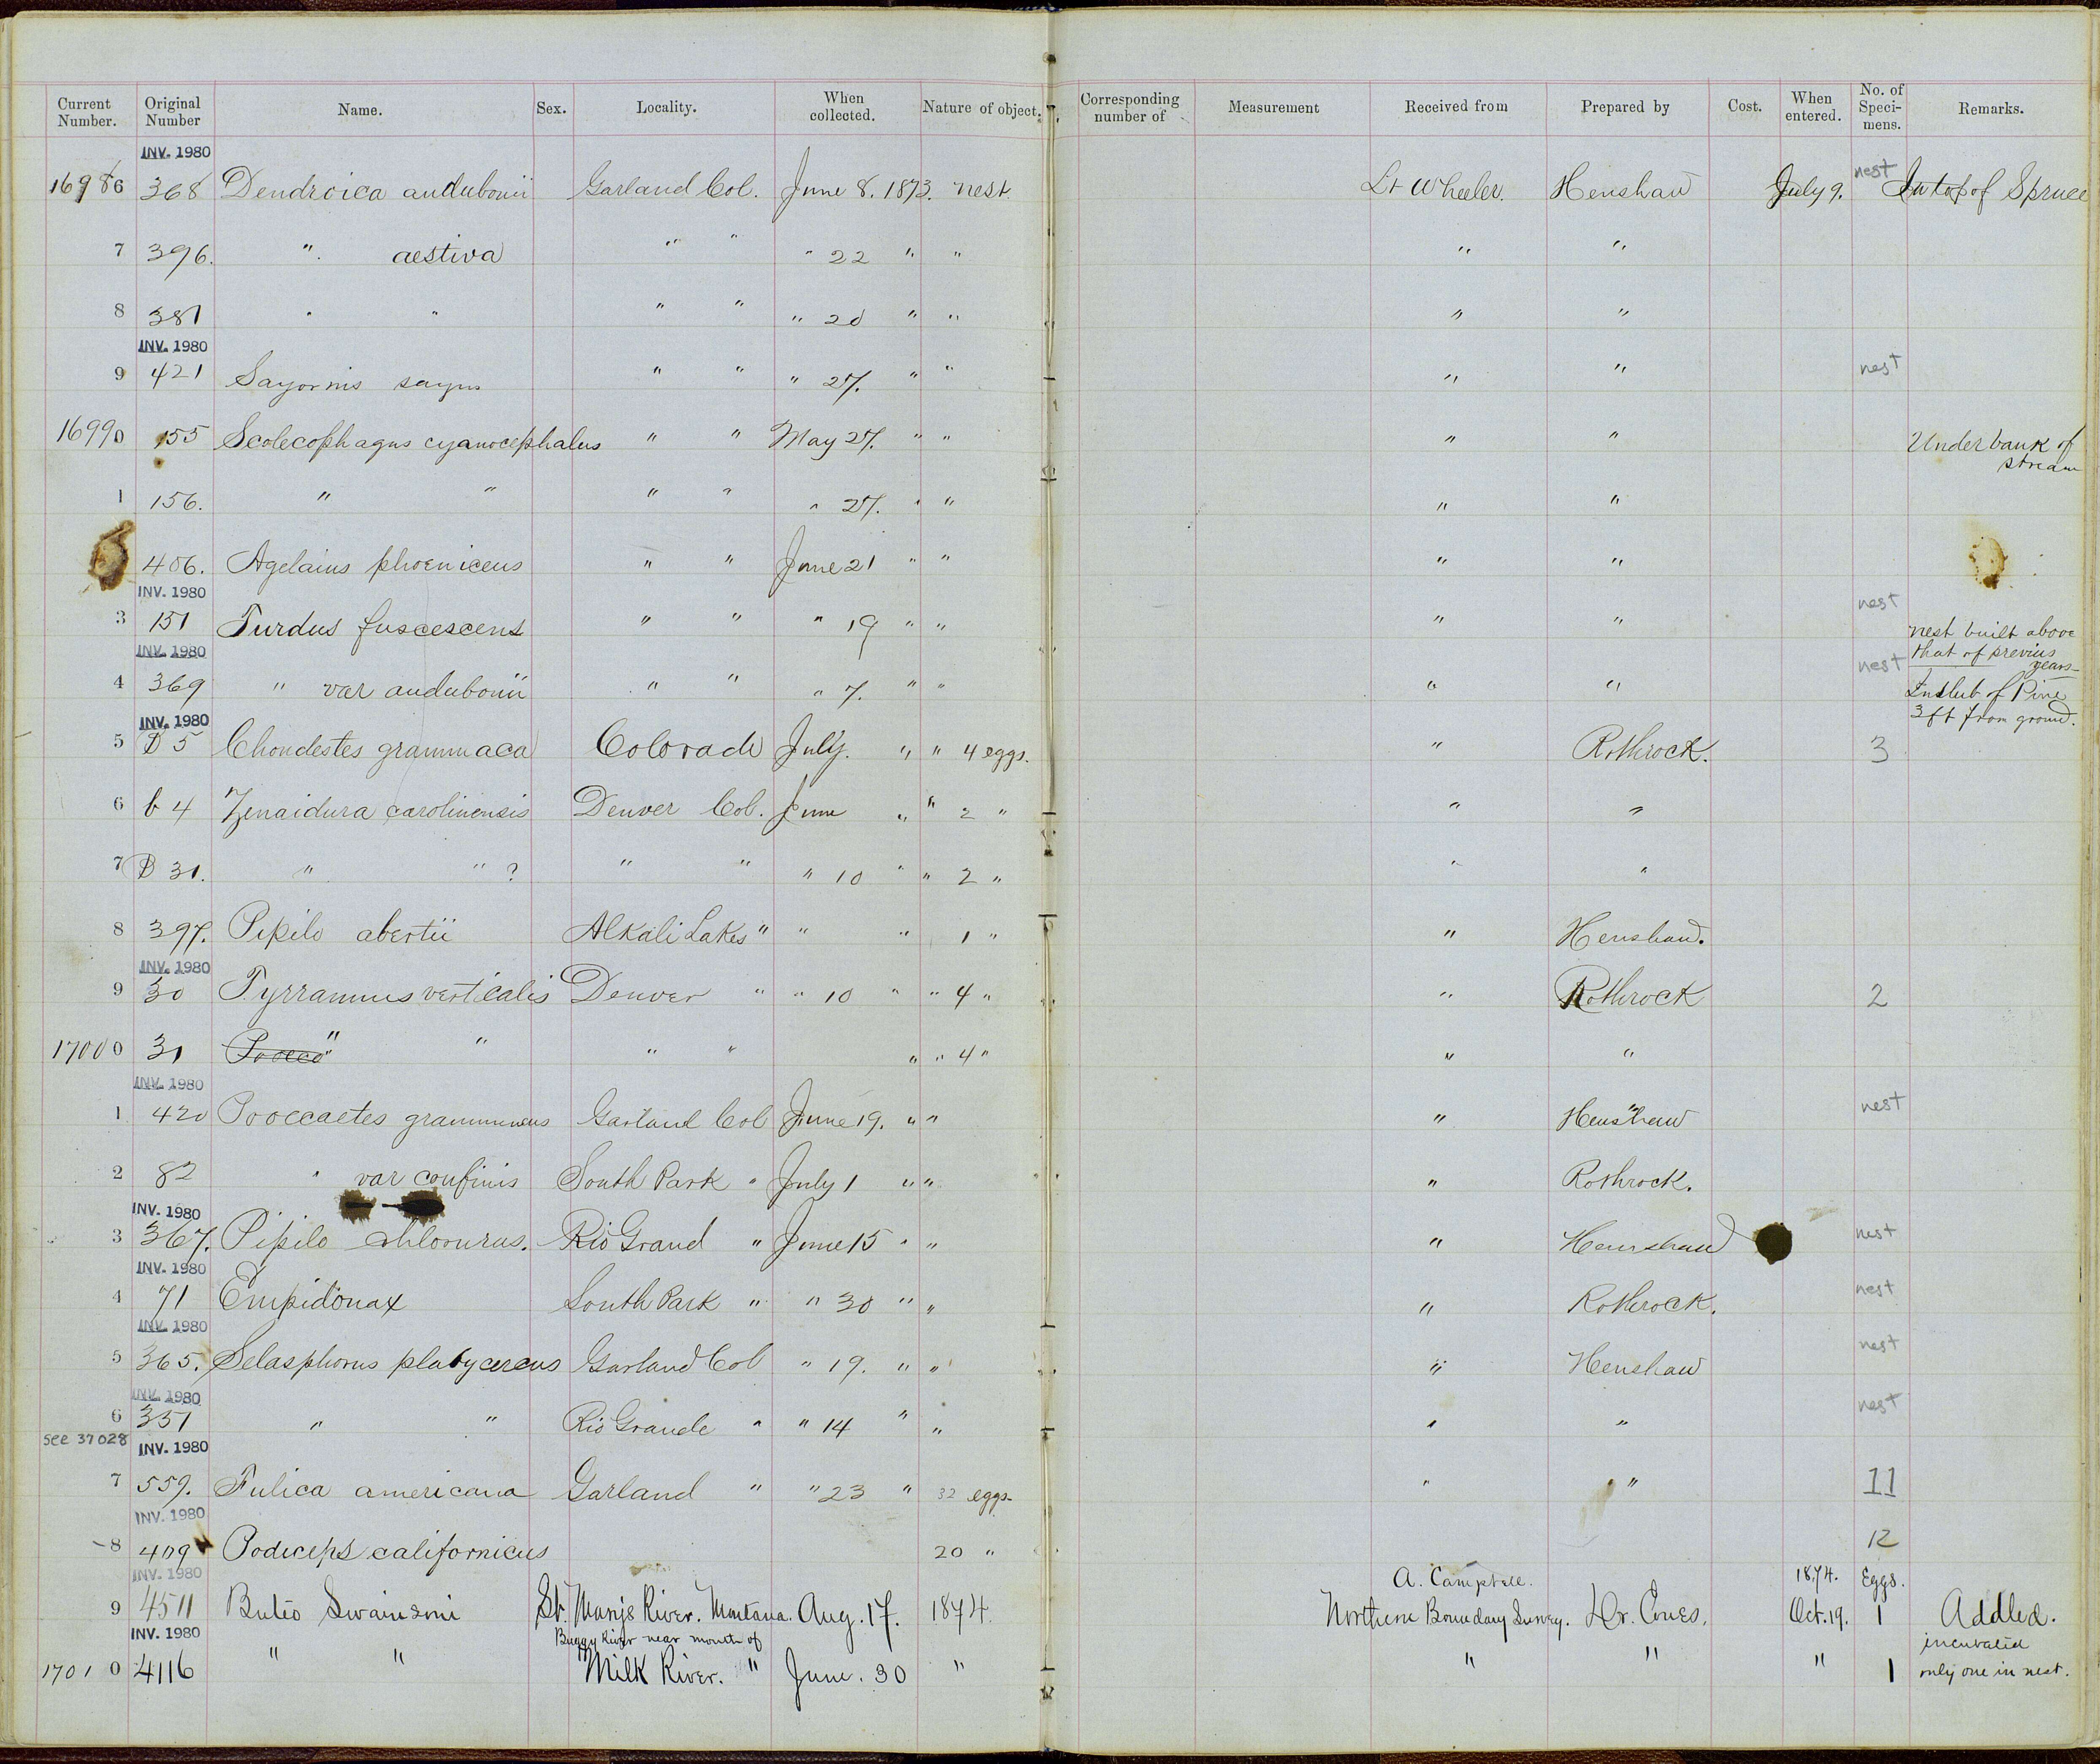 Current Number. Original Number Name. Sex. Locality. When collected. Nature of object. Corresponding number of Measurement Received from Prepared by Cost. When entered. No. of Speci-mens. Remarks.
INV. 1980
16986 368 Dendroica audubonii Garland Col. June 8. 1873. nest. Lt Wheeler. Henshaw July 9. nest In top of Spruce
7 396. " aestiva " " " 22 " " " "
8 381 " " " " " 20 " " " "
INV. 1980
9 421 Sayornis sayus " " " 27. " " " " nest
16990 155 Scolecophagus cyanocephalus " " May 27. " " " " Under bank of stream
1 156. " " " " " 27. " " " "
406. Agelaius phoeniceus " " June 21 " " " "
INV. 1980
3 151 Turdus fuscescens " " " 19 " " " " nest nest built above that of previus years
INV. 1980
4 369 " var audubonii " " " 7. " " " " nest of Pine 3 ft from ground.
INV. 1980
5 D 5 Chondestes grammaca Colorado July. " " 4 eggs. " Rothrock. 3
6 b 4 Zenaidura carolinensis Denver Col. June " " 2 " " "
7 D 31. " " ? " " " 10 " " 2 " " "
8 397. Pipilo abertii Alkali Lakes " " " 1 " " Henshaw.
INV. 1980
9 30 Tyrramnus verticalis Denver " " 10 " " 4 " " Rothrock 2
17000 31 Pooeca " " " " " " 4 " " "
INV. 1980
1 420 Pooccaetes grammineus Garland Col June 19. " " " Henshaw nest
2 82 " var confinis South Park " July 1 " " " Rothrock.
INV. 1980
3 367. Pipilo chlorurus. Rio Grand " June 15 " " " Henshaw nest
INV. 1980
4 71 Empidonax South Park " " 30 " " " Rothrock. nest
INV. 1980
5 365. Selasphorus platycercus Garland Col " 19. " " " Henshaw nest
INV. 1980
6 351 " " Rio Grande " " 14 " " " " nest
see 37028
INV. 1980
7 559. Fulica americana Garland " " 23 " 32 eggs. " " 11
INV. 1980
8 409 Podiceps californicus 20 " 12
INV. 1980
A. Campbell. 1874. Eggs.
9 4511 Buteo Swainsoni St. Marys River. Montana. Aug. 17. 1874. Northern Boundary Survey. Dr. Coues. Oct. 19. 1 Addled.
INV. 1980
Buggy River near mouth of incubated
17010 4116 " " Milk River. " June. 30 " " " " 1 only one in nest.